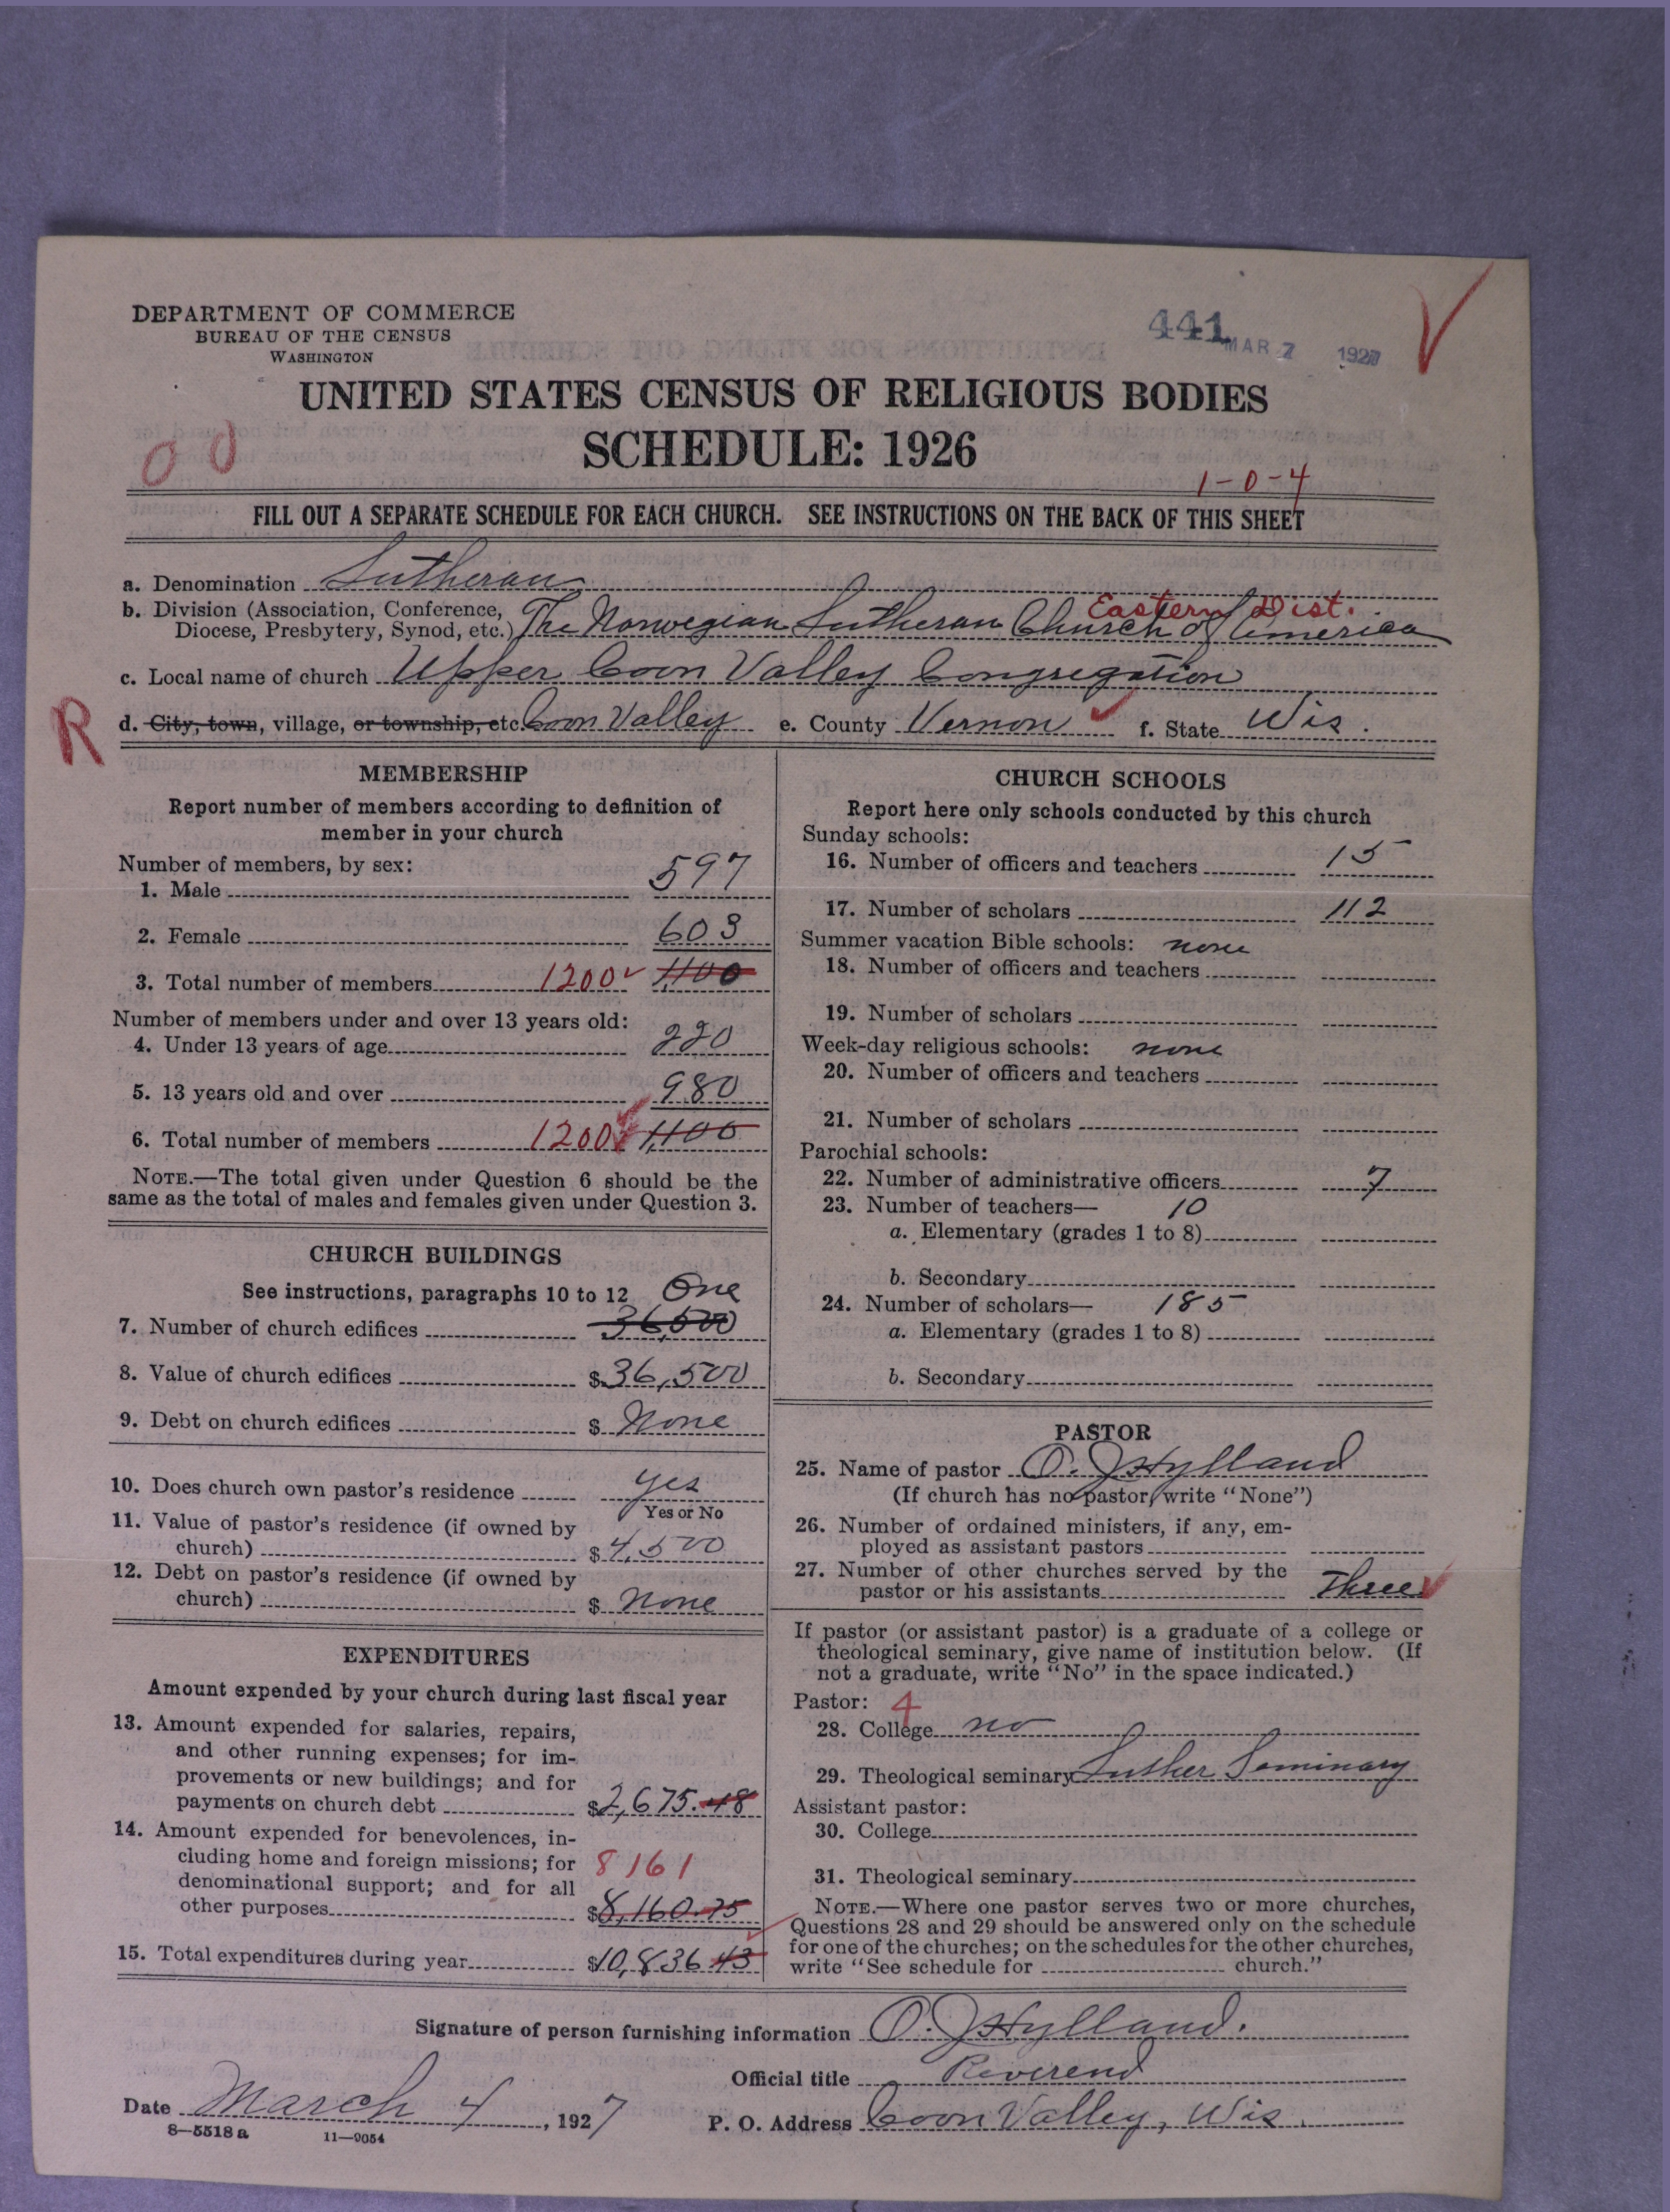 DEPARTMENT OF COMMERCE
BUREAU OF THE CENSUS
WASHINGTON
441 MAR 7 1927
UNITED STATES CENSUS OF RELIGIOUS BODIES
SCHEDULE: 1926
00
1-0-4
FILL OUT A SEPARATE SCHEDULE FOR EACH CHURCH. SEE INSTRUCTIONS ON THE BACK OF THIS SHEET
a. Denomination Lutheran
Eastern Dist.
b. Division (Association, Conference,
Diocese, Presbytery, Synod, etc.) The Norwegian Lutheran Church of America
c. Local name of church Upper Coon Valley Congregation
R
d. City, town, village, or township, etc. Coon Valley e. County Vernon f. State Wis.
MEMBERSHIP
Report number of members according to definition of
member in your church
Number of members, by sex:
1. Male 597
2. Female 603
3. Total number of members 1200 1100
Number of members under and over 13 years old:
4. Under 13 years of age 220
5. 13 years old and over 980
6. Total number of members 1200 1,100
NOTE.—The total given under Question 6 should be the
same as the total of males and females given under Question 3.
CHURCH BUILDINGS
See instructions, paragraphs 10 to 12 One
7. Number of church edifices 36,500
8. Value of church edifices $ 36,500
9. Debt on church edifices $ None
10. Does church own pastor's residence yes
Yes or No
11. Value of pastor's residence (if owned by
church) $ 4,500
12. Debt on pastor's residence (if owned by
church) $ None
EXPENDITURES
Amount expended by your church during last fiscal year
13. Amount expended for salaries, repairs,
and other running expenses; for im-
provements or new buildings; and for
payments on church debt $2,675.48
14. Amount expended for benevolences, in-
cluding home and foreign missions; for 8161
denominational support; and for all
other purposes $8,160.75
15. Total expenditures during year $10,836 43
CHURCH SCHOOLS
Report here only schools conducted by this church
Sunday schools:
16. Number of officers and teachers 15
17. Number of scholars 112
Summer vacation Bible schools: none
18. Number of officers and teachers
19. Number of scholars
Week-day religious schools: none
20. Number of officers and teachers
21. Number of scholars
Parochial schools:
22. Number of administrative officers 7
23. Number of teachers— 10
a. Elementary (grades 1 to 8)
b. Secondary
24. Number of scholars— 185
a. Elementary (grades 1 to 8)
b. Secondary
PASTOR
25. Name of pastor O. J. Hylland
(If church has no pastor, write "None")
26. Number of ordained ministers, if any, em-
ployed as assistant pastors
27. Number of other churches served by the
pastor or his assistants Three
If pastor (or assistant pastor) is a graduate of a college or
theological seminary, give name of institution below. (If
not a graduate, write "No" in the space indicated.)
Pastor: 4
28. College no
29. Theological seminary Luther Seminary
Assistant pastor:
30. College
31. Theological seminary
NOTE.—Where one pastor serves two or more churches,
Questions 28 and 29 should be answered only on the schedule
for one of the churches; on the schedules for the other churches,
write "See schedule for church."
Signature of person furnishing information O. J. Hylland.
Official title Reverend
Date March 4, 1927 P. O. Address Coon Valley, Wis.
8—5518 a 11—9054